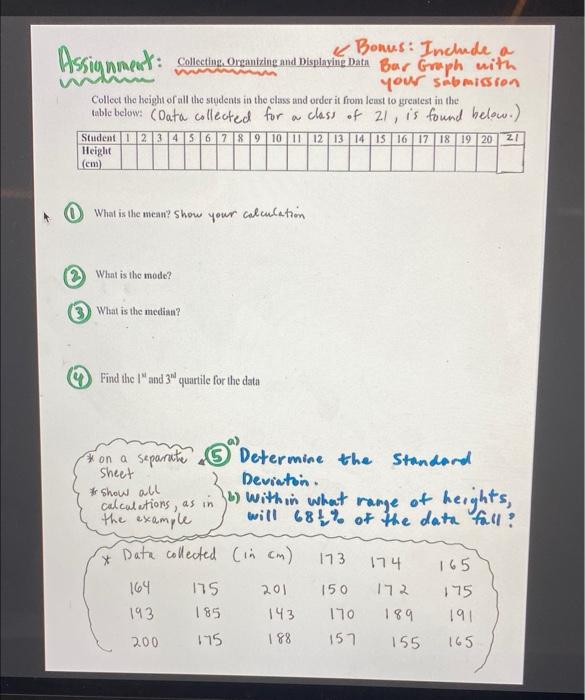 Assignment: Collecting, Organizing and Displaying Data
Bonus: Include a
Bar Graph with
your submission
Collect the height of all the students in the class and order it from least to greatest in the
table below: (Data collected for a class of 21, is found below.)
Student 1 2 3 4 5 6 7 8 9 10 11 12 13 14 15 16 17 18 19 20 21
Height
(cm)
1 What is the mean? Show your calculation
2 What is the mode?
3 What is the median?
4 Find the 1st and 3rd quartile for the data
* on a separate
sheet
* show all
calculations, as in
the example
5 a) Determine the Standard
Deviaton.
b) Within what range of heights,
will 68½% of the data fall?
* Data collected (in cm) 173 174 165
164 175 201 150 172 175
193 185 143 170 189 191
200 175 188 157 155 165